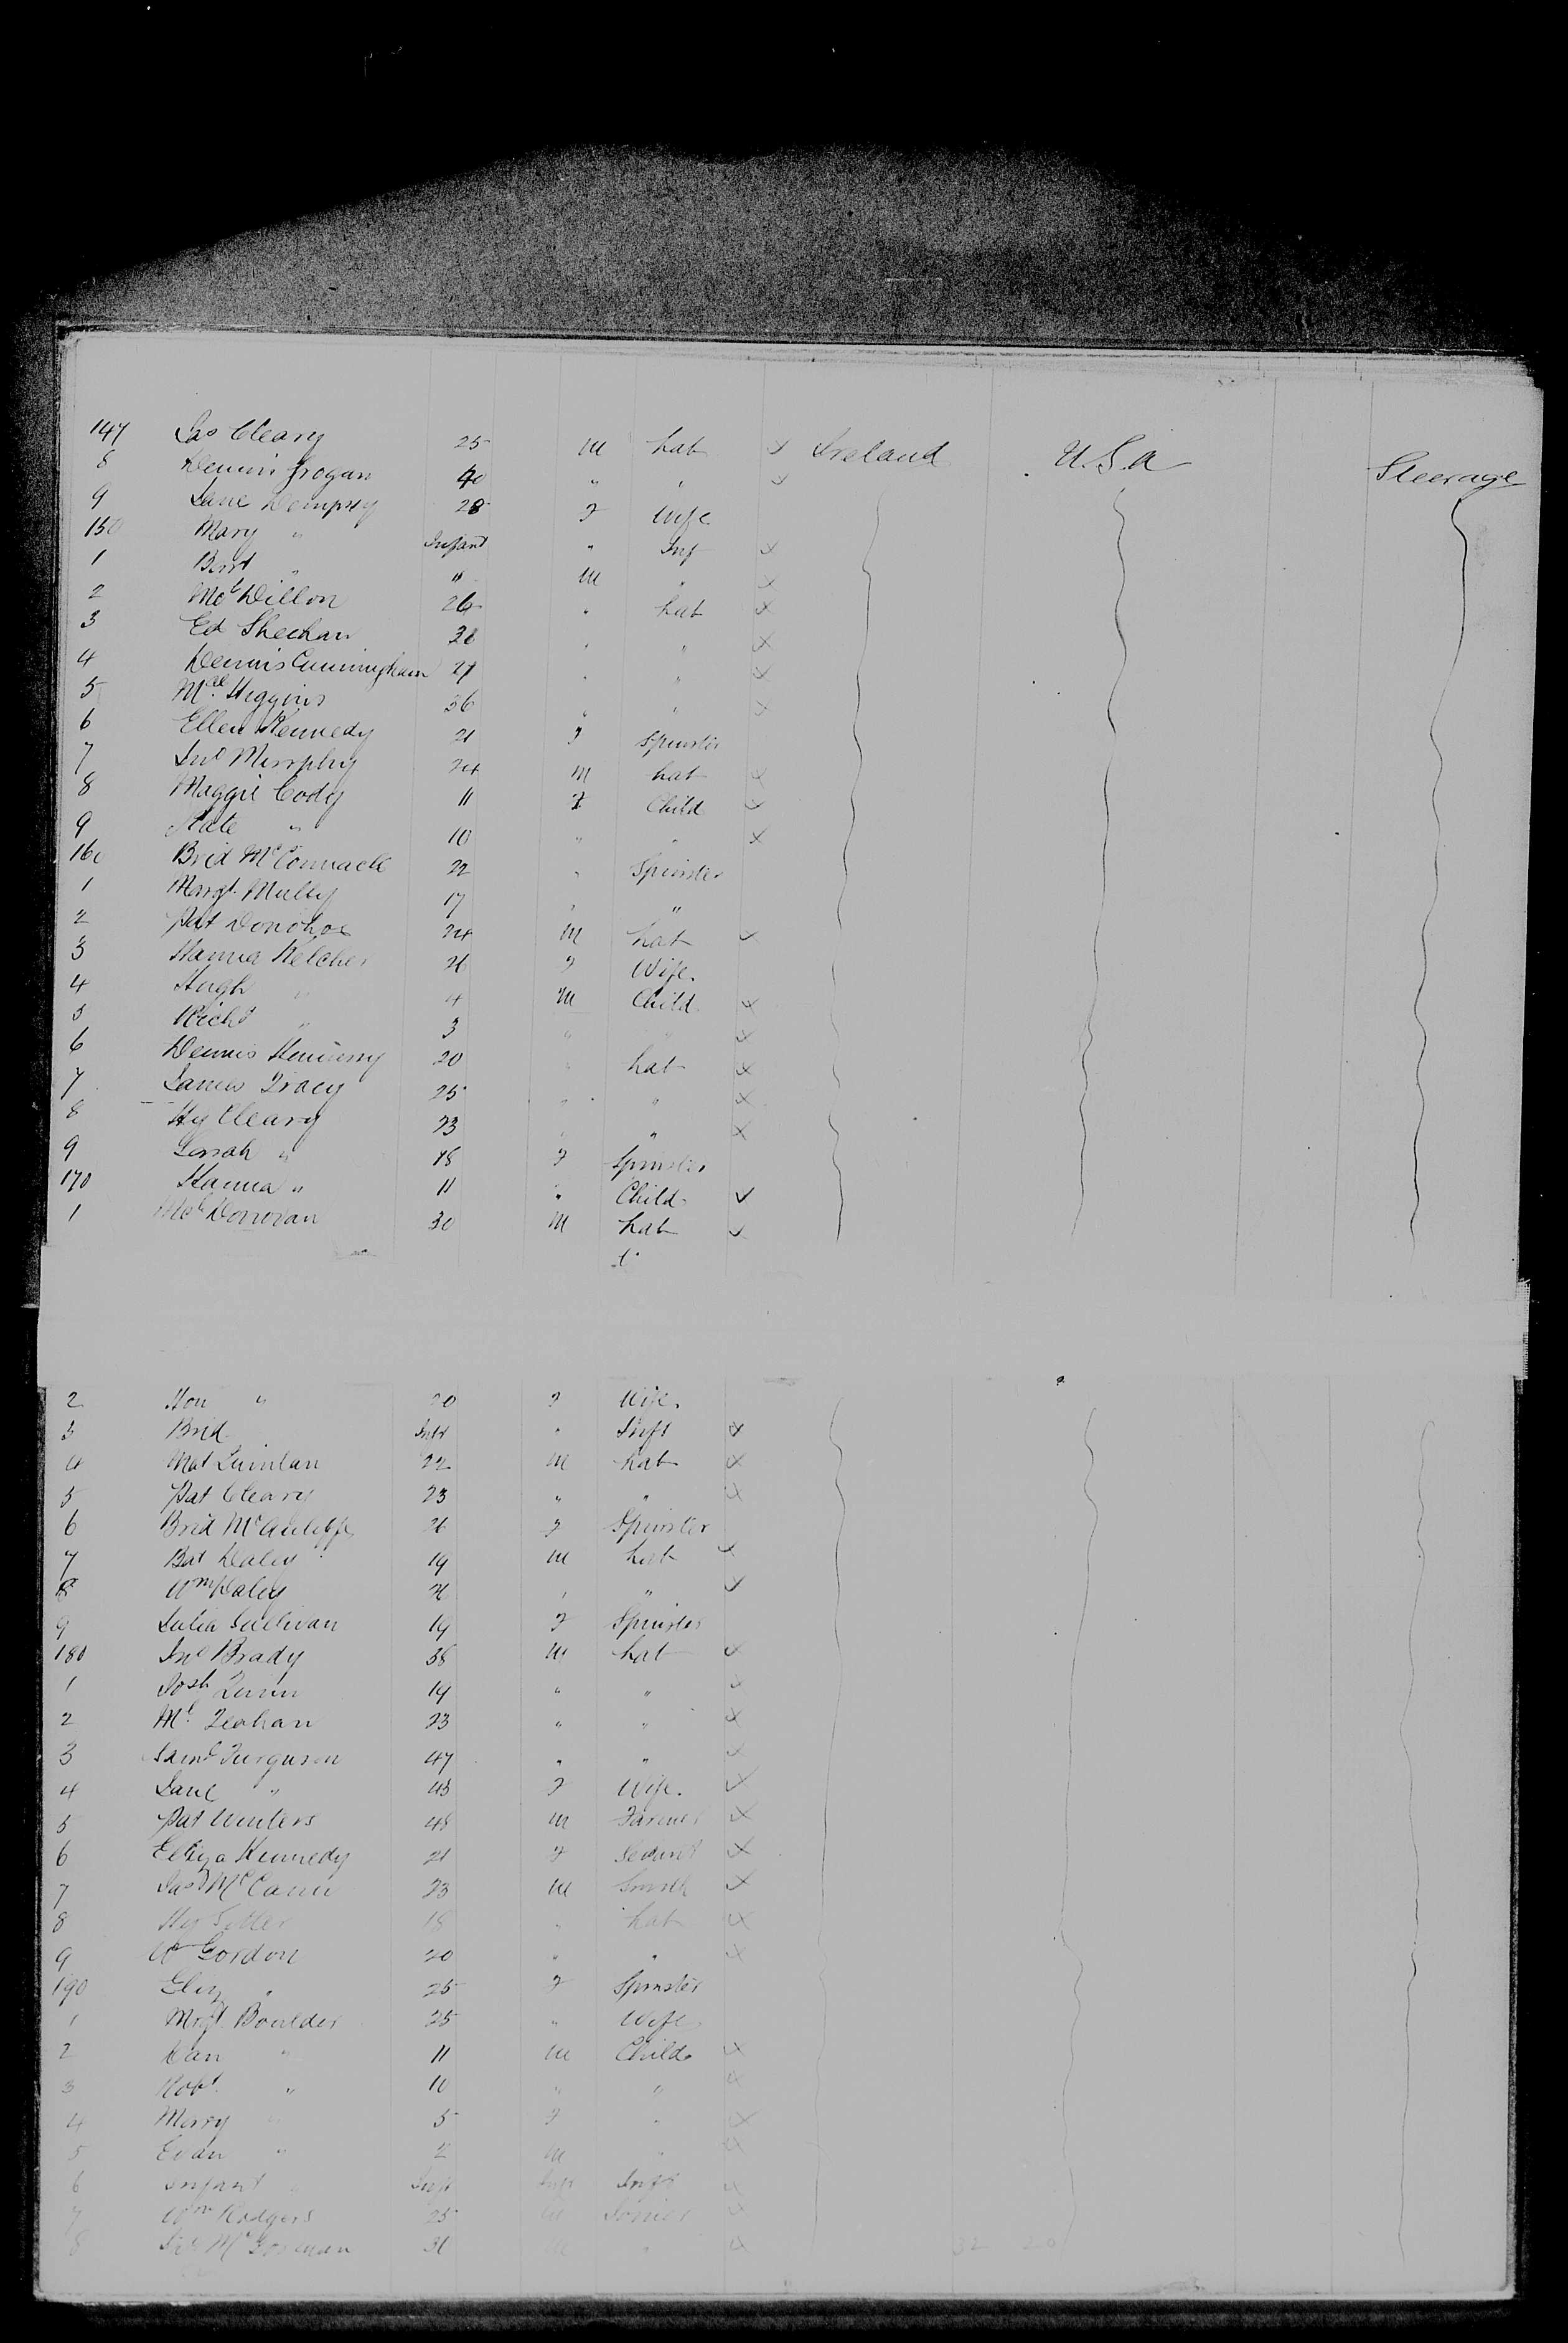 147 Jas Cleary 25 M Lab x Ireland U.S.A Steerage
8 Dennis Grogan 40 " " x
9 Jane Dempsy 28 F Wife
150 Mary " Infant " Inf x
1 " " M " x
2 Mcl Dillon 26 " Lab x
3 Ed Sheehan 28 " " x
4 Dennis Cunningham 27 " " x
5 Mcl Higgins 36 " " x
6 Ellen Kennedy 21 F Spinster
7 Jno Murphy 24 M Lab x
8 Maggie Cody 11 F Child x
9 Kate " 10 " " x
160 Brid McCormack 22 " Spinster
1 Margt. Mulby 17 " "
2 Pat Donohoe 24 M Lab x
3 Hanna Kelcher 26 F Wife.
4 Hugh " 4 M Child x
5 Richd " 3 " " x
6 Dennis 20 " Lab x
7 James Tracy 25 " " x
8 Hy Cleary 23 " " x
9 Sarah " 18 F Spinster
170 Hanna " 11 " Child x
1 Mcl Donovan 30 M Lab x
2 Hon " 20 F Wife.
3 Brid Inft " Inft x
4 Mat Quinlan 22 M Lab x
5 Pat Cleary 23 " " x
6 Brid McAuliffe 26 F Spinster
7 Bat Daley 19 M Lab x
8 Wm Daley " " x
9 Julia Sullivan 19 F Spinster
180 Jno Brady 38 M Lab x
1 Josh Quinn 19 " " x
2 Ml. 23 " " x
3 Saml Furguson 47 " " x
4 Jane " 45 F Wife. x
5 Pat Winters 48 M Farmer x
6 Eliza Kennedy 21 F Servant x
7 Jas McCann 23 M Smith x
8 Hy 18 " Lab x
9 Gordon 20 " " x
190 Eliz " 25 F Spinster
1 Mrgt. Boulder 25 " Wife
2 Dan " 11 M Child x
3 Robt. " 10 " " x
4 Merry " 5 F " x
5 Evan " 2 M " x
6 Infant " Inft Inft Inft x
7 Wm Rodgers 25 M x
8 31 x 32 20